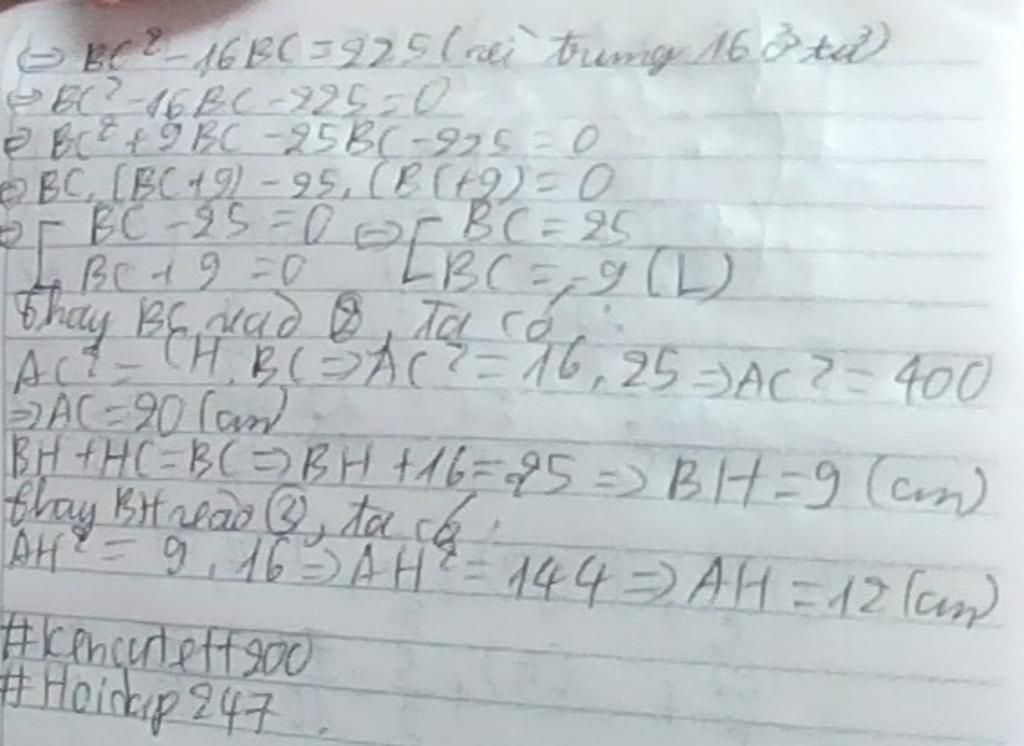 ⇔ BC² - 16BC = 225 (vì trung 16 ở tử)
⇔ BC² - 16BC - 225 = 0
⇔ BC² + 9BC - 25BC - 225 = 0
⇔ BC.(BC + 9) - 25.(BC + 9) = 0
⇔ [ BC - 25 = 0 ⇔ [ BC = 25
[ BC + 9 = 0 [ BC = -9 (L)
Thay BC vào ②, ta có:
AC² = CH.BC ⇒ AC² = 16.25 ⇒ AC² = 400
⇒ AC = 20 (cm)
BH + HC = BC ⇒ BH + 16 = 25 ⇒ BH = 9 (cm)
thay BH vào ③, ta có:
AH² = 9.16 ⇒ AH² = 144 ⇒ AH = 12 (cm)
#kencuteff900
#Hoidap247